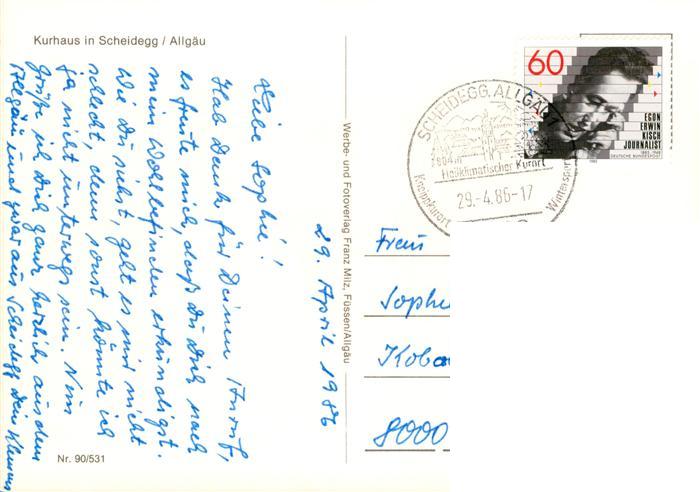 Kurhaus in Scheidegg / Allgäu
29. April 1986
Liebe Sophie!
Hab Dank für Deinen Anruf,
es freute mich, daß Du Dich nach
mein Wohlbefinden erkundigst.
Wie Du siehst, geht es mir nicht
schlecht, denn sonst könnte ich
ja nicht unterwegs sein. Nun
Grüße ich Dich ganz herzlich aus dem
Allgäu und zwar aus Scheidegg Dein Klemens
Nr. 90/531
Werbe- und Fotoverlag Franz Milz, Füssen/Allgäu
60
EGON
ERWIN
KISCH
JOURNALIST
1885-1948
DEUTSCHE BUNDESPOST
1985
SCHEIDEGG, ALLGÄU
Heilklimatischer Kurort
Kneippkurort
Wintersport
29.-4.86-17
Frau
Sophie
Koba
8000